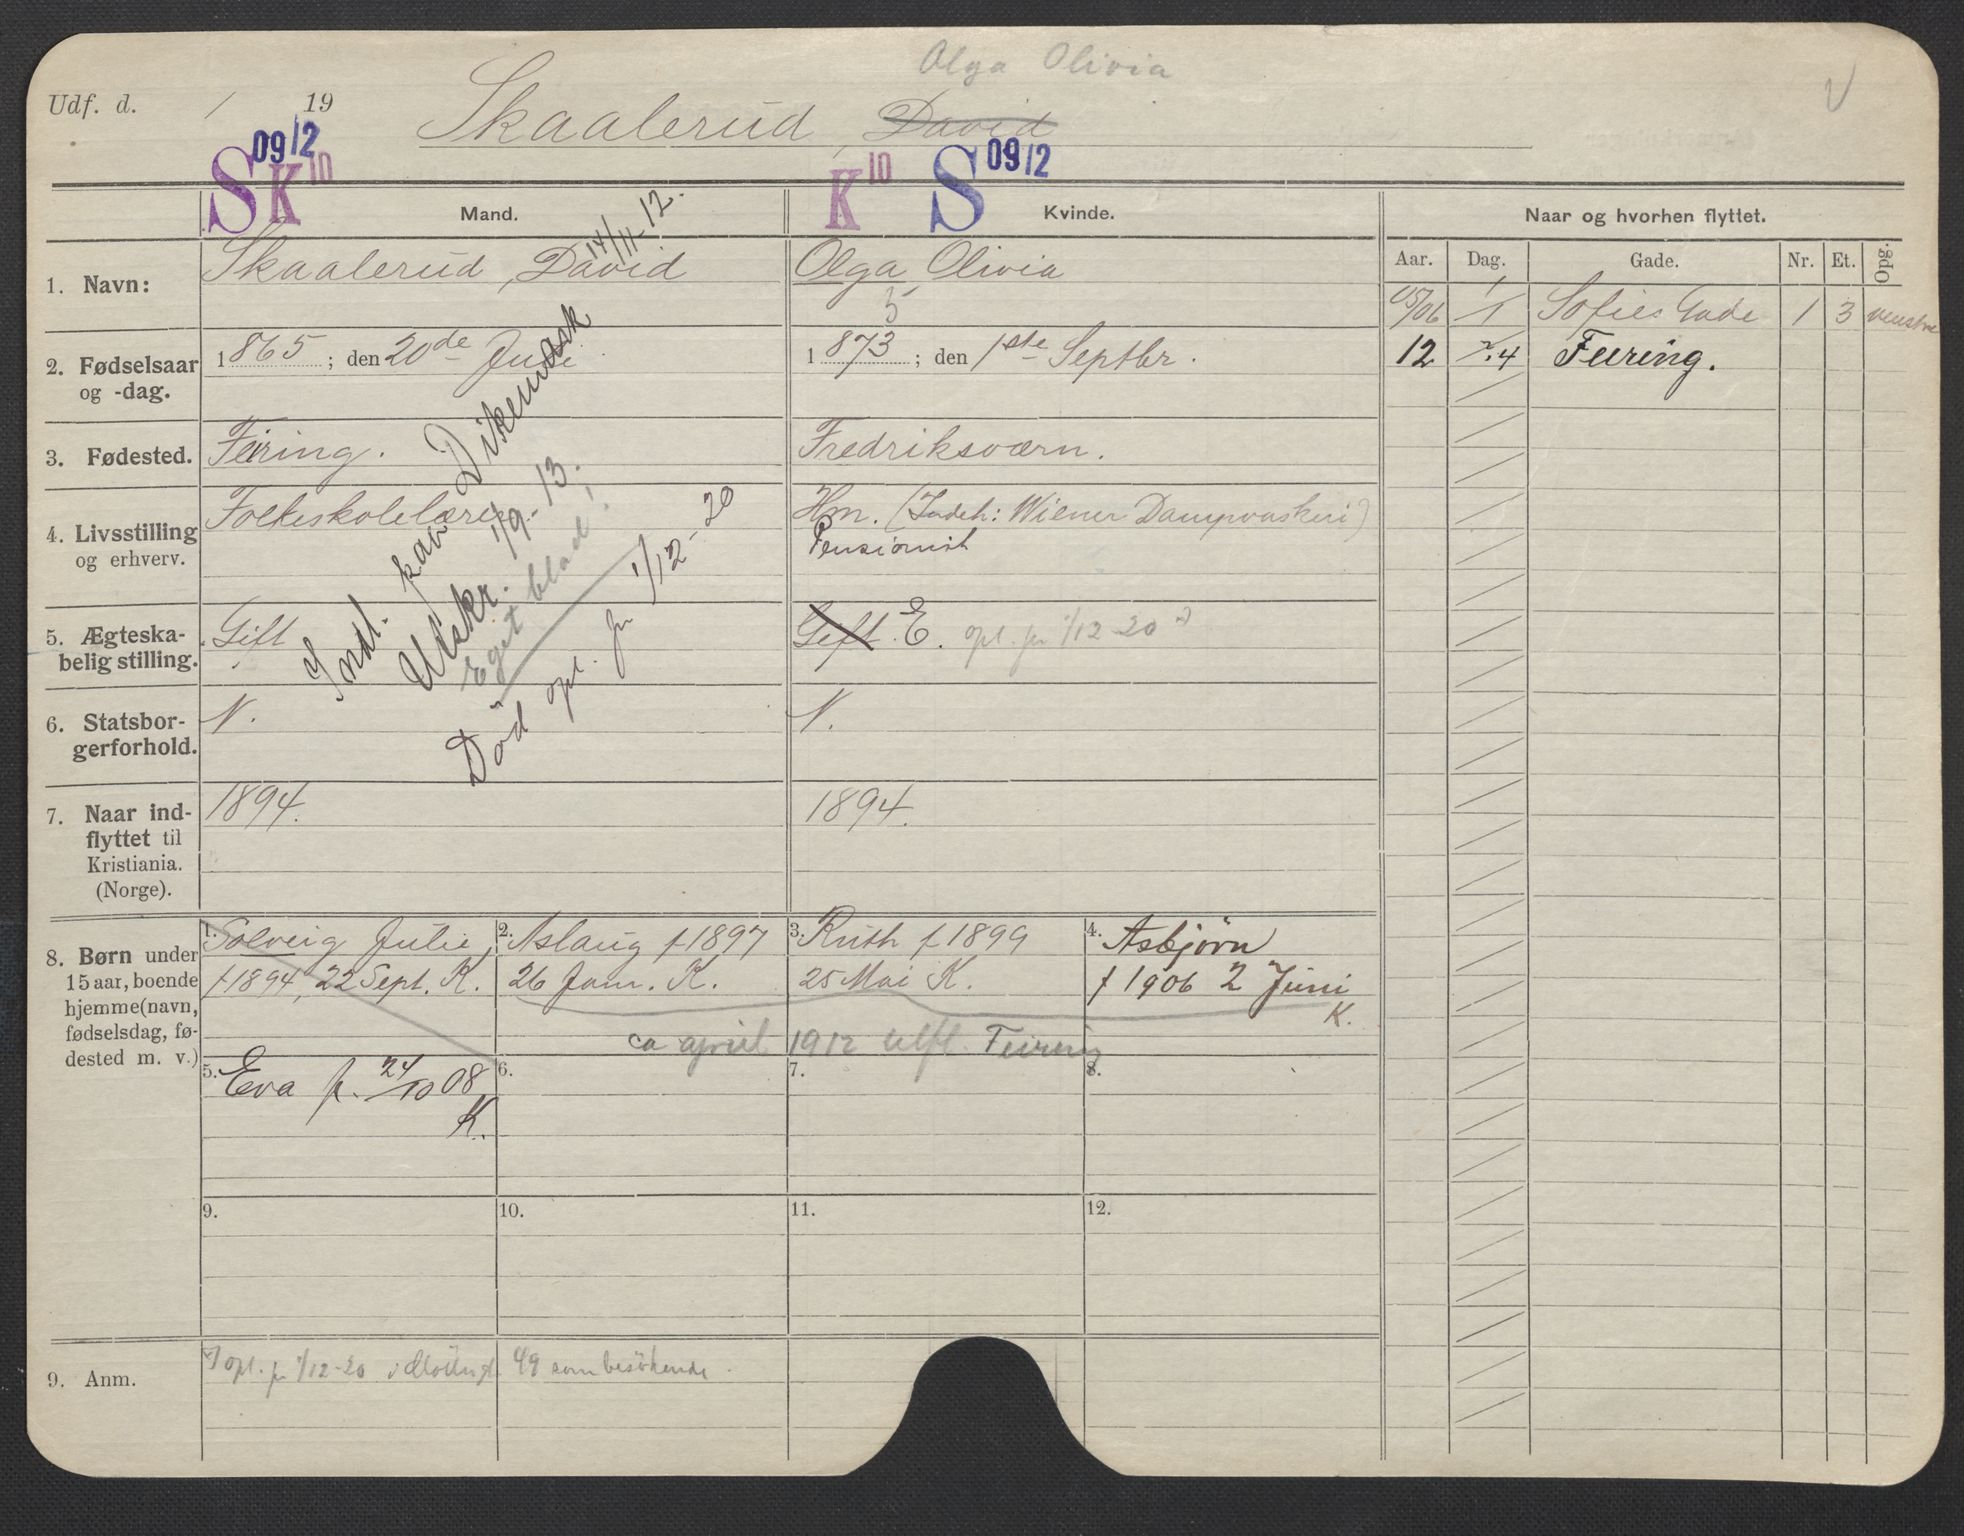 Olga Olivia
Udf. d. / 19
Skaalerud, David
09/2 09/2
S K 10 K 10 S
Mand. Kvinde. Naar og hvorhen flyttet.
Aar. Dag. Gade. Nr. Et. Opg.
1. Navn: Skaalerud, David Olga Olivia
14/11-12.
05/06 1/1 Sofies Gade 1 3 venstre
12 2/4 Feiring.
2. Fødselsaar og -dag. 1865; den 20de Juli 1873; den 1ste Septbr.
3. Fødested. Feiring. Fredriksværn.
4. Livsstilling og erhverv. Folkeskolelærer Hm. (Indeh: Wiener Dampvaskeri)
Pensionist
5. Ægteskabelig stilling. Gift Gift. E. opl. pr 1/12-20
6. Statsborgerforhold. N. N.
Indl. paa Dikemark
Utskr. 1/9-13.
Eget blad!
Död opl. pr 1/12-20
7. Naar indflyttet til Kristiania. (Norge). 1894. 1894.
8. Børn under 15 aar, boende hjemme (navn, fødselsdag, fødested m. v.)
1. Solveig Julie 2. Aslaug f 1897 3. Ruth f 1899 4. Asbjørn
f 1894, 22 Sept. K. 26 Jan. K. 25 Mai K. f 1906 2 Juni
K.
ca april 1912 utfl. Feiring
5. Eva f. 24/10 08 6. 7. 8.
K.
9. 10. 11. 12.
9. Anm. opl. pr 1/12-20 i 49 som besökende.